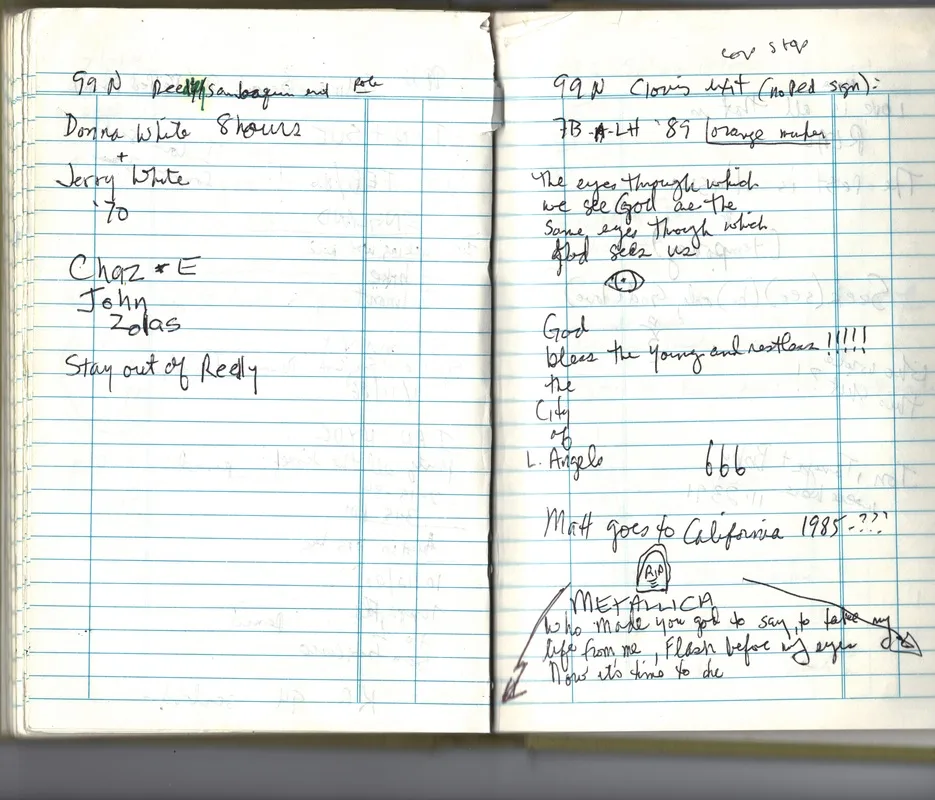 99 N Reedly/sanboquin end Pole
Donna White 8 hours
+
Jerry White
'70
Chaz * E
John
Zolas
Stay out of Reedly
cove stop
99 N Clovis exit (no Ped sign):
7B-A-LH '89 orange marker
The eyes through which
we see God are the
same eyes though which
God sees us
God
bless the young and restless !!!!!
the
City
of
L. Angelo
666
Matt goes to California 1985-???
RIP
METALLICA
Who made you god to say, to take my
life from me, Flash before my eyes
Now it's time to die